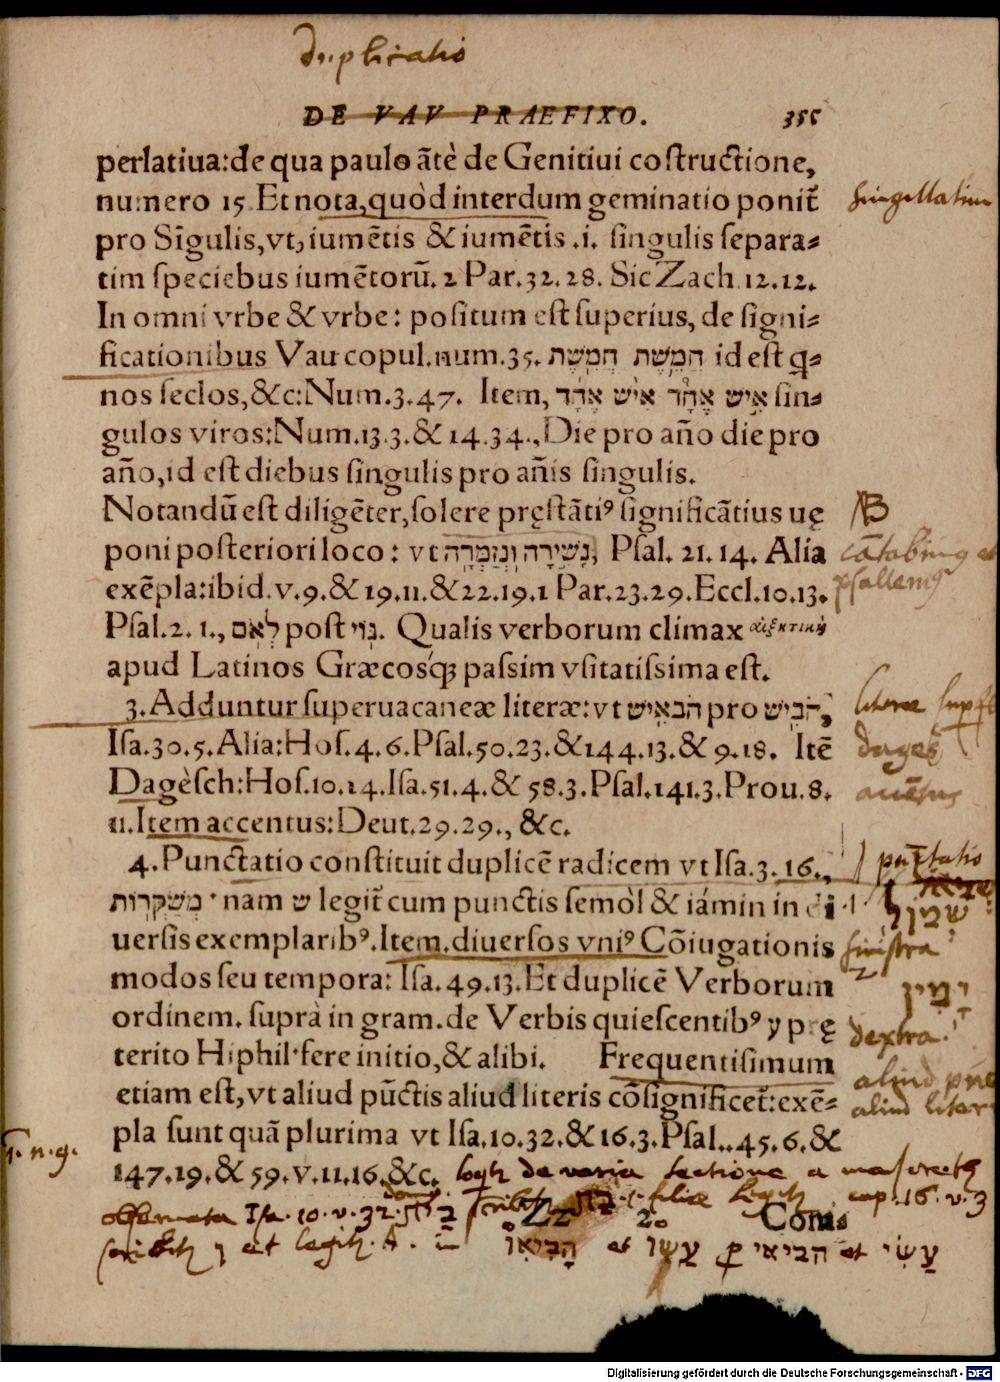 duplicatio
DE VAV PRAEFIXO. 355
perlatiua: de qua paulo ãtè de Genitiui cõſtructione,
numero 15. Et nota, quòd interdum geminatio ponit᷑
pro Sĩgulis, vt, iumẽtis & iumẽtis .i. ſingulis ſepara⸗
tim ſpeciebus iumẽtorũ. 2 Par. 32. 28. Sic Zach. 12. 12.
In omni vrbe & vrbe: poſitum eſt ſuperius, de ſigni⸗
ficationibus Vau copul. num. 35. חֲמֵשֶׁת חֲמֵשֶׁת id eſt q̃⸗
nos ſeclos, &c: Num. 3. 47. Item, אִישׁ אֶחָד אִישׁ אֶחָד ſin⸗
gulos viros: Num. 13. 3. & 14. 34., Die pro año die pro
año, id eſt diebus ſingulis pro añis ſingulis.
Notandũ eſt diligẽter, ſolere pręſtãtiꝰ ſignificãtius uę
poni poſteriori loco: vt נָשִׁירָה וּנְזַמְּרָה, Pſal. 21. 14. Alia
exẽpla: ibid. v. 9. & 19. 11. & 22. 19. 1 Par. 23. 29. Eccl. 10. 13.
Pſal. 2. 1., לְאֹם poſt גּוֹי. Qualis verborum climax αὐξκτικὴ
apud Latinos Græcosq́ꝫ paſsim vſitatiſsima eſt.
3. Adduntur ſuperuacaneæ literæ: vt הִבְאִישׁ pro הֹבִישׁ,
Iſa. 30. 5. Alia: Hoſ. 4. 6. Pſal. 50. 23. & 144. 13. & 9. 18. Itẽ
Dagèſch: Hoſ. 10. 14. Iſa. 51. 4. & 58. 3. Pſal. 141. 3. Prou. 8.
11. Item accentus: Deut. 29. 29., &c.
4. Punctatio conſtituit duplicẽ radicem vt Iſa. 3. 16.,
מְשַׂקְּרוֹת nam ש legit᷑ cum punctis ſemòl & iámin in di
uerſis exemplaribꝰ. Item. diuerſos vniꝰ Cõiugationis
modos ſeu tempora: Iſa. 49. 13. Et duplicẽ Verborum
ordinem. ſuprà in gram. de Verbis quieſcentibꝰ ע prę
terito Hiphil fere initio, & alibi. Frequentiſimum
etiam eſt, vt aliud pũctis aliud literis cõſignificet᷑: exẽ⸗
pla ſunt quã plurima vt Iſa. 10. 32. & 16. 3. Pſal. 45. 6. &
147. 19. & 59. v. 11. 16. &c.
Zz 2. Com⸗
singillatim
NB
psallemꝰ
dages
שְׂמֹול
sinistra
יָמִין
dextra
v. n. g.
de varia lectione a
Isa. 10. v. 32. בית
cap. 16. v. 3
הָבִיאִוּ et עֲשִׂוּ הביאי et עֲשִׂי
Digitalisierung gefördert durch die Deutsche Forschungsgemeinschaft - DFG